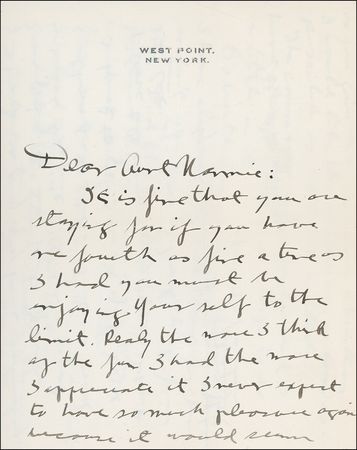 WEST POINT.
NEW YORK.
Dear Aunt Nannie:
It is fine that you are
staying for if you have
one fourth as fine a time as
I had you must be
enjoying your self to the
limit. Realy the more I think
of the fun I had the more
I appreciate it I never expect
to have so much pleasure again
because it would seem